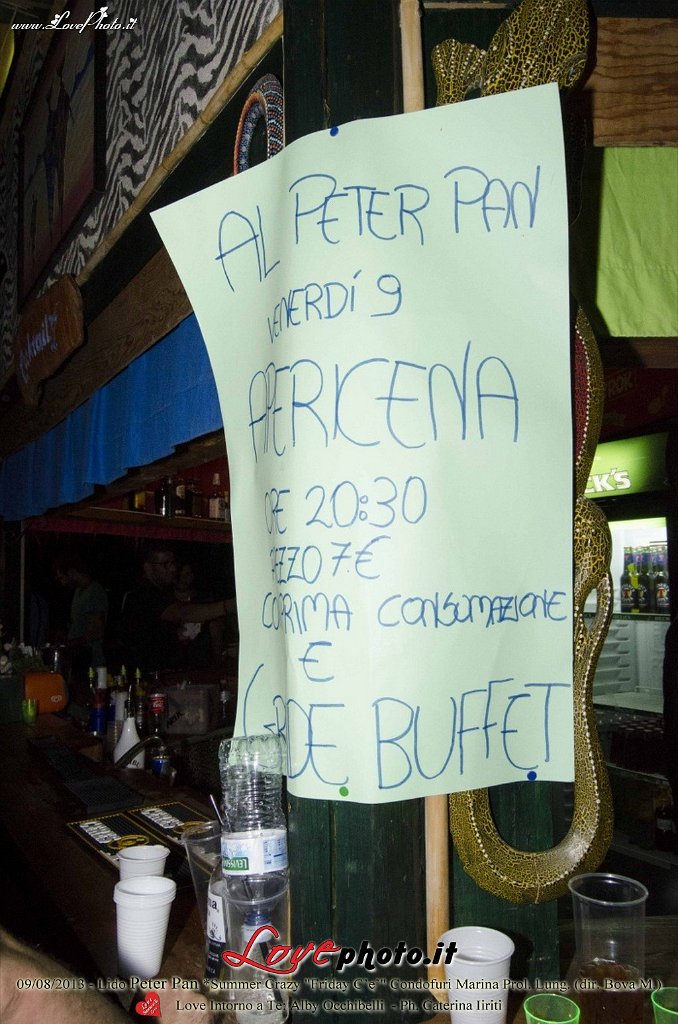 www.LovePhoto.it
AL PETER PAN
VENERDÍ 9
APERICENA
ORE 20:30
7€
CONSUMAZIONE
E
BUFFET
CK'S
Lovephoto.it
09/08/2013 - Lido Peter Pan *Summer Crazy "Friday C'e'" Condofuri Marina Prol. Lung. (dir. Bova M.)
Love Intorno a Te: Alby Occhibelli - Ph. Caterina Iiriti